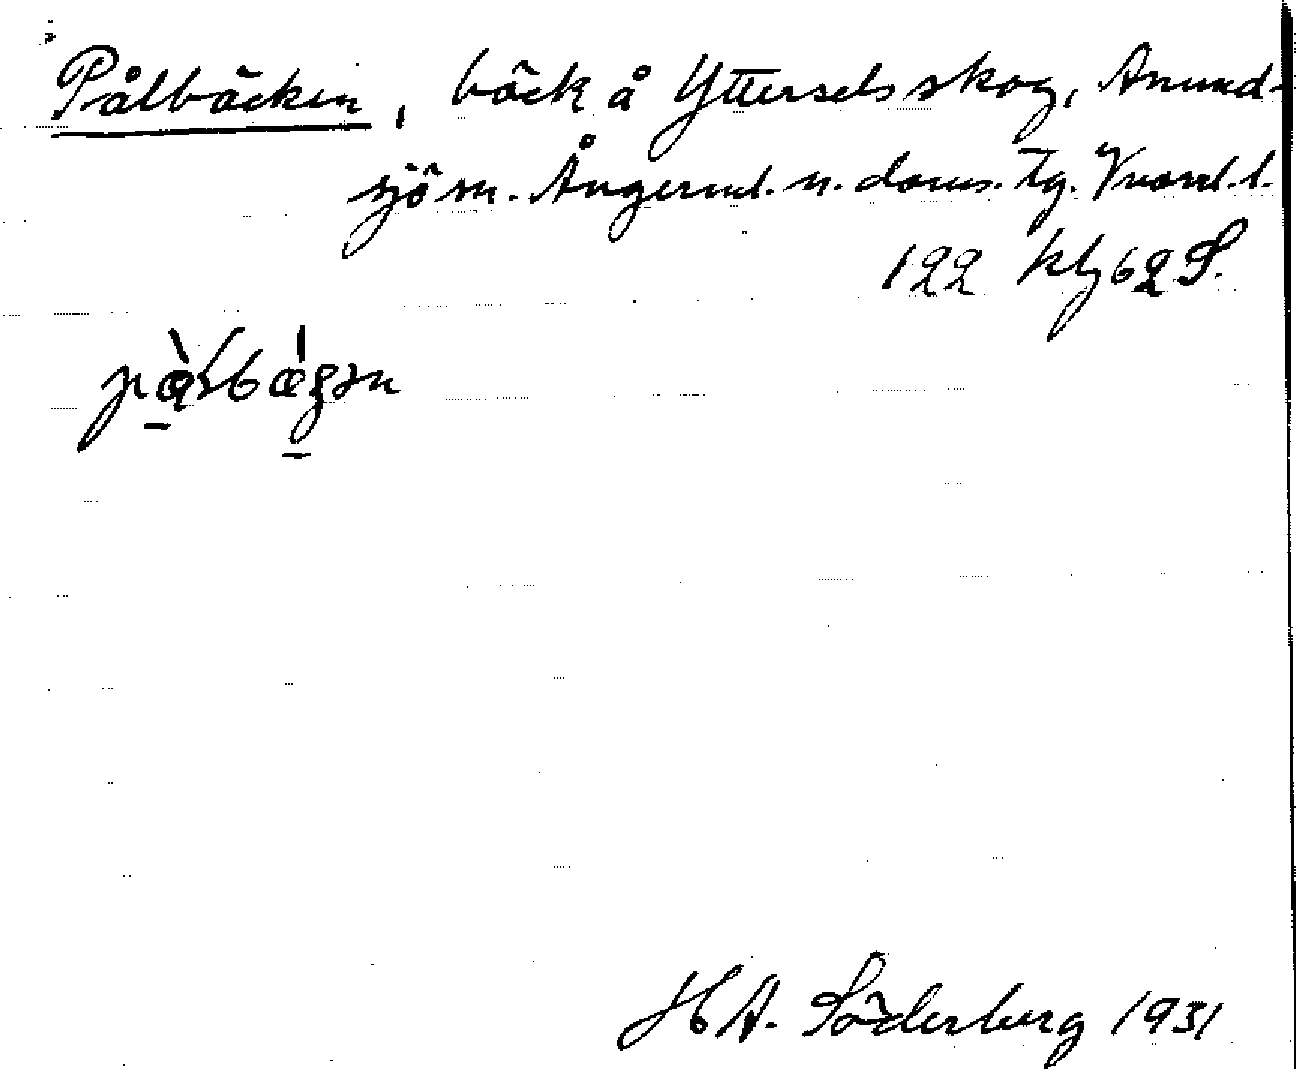 Pålbäcken, bäck å Ytterselsskog, Anund-
sjö sn. Ångerml. n. doms. tg. Vnorrl. l.
122 kbg 62 S.
H A. Söderberg 1931